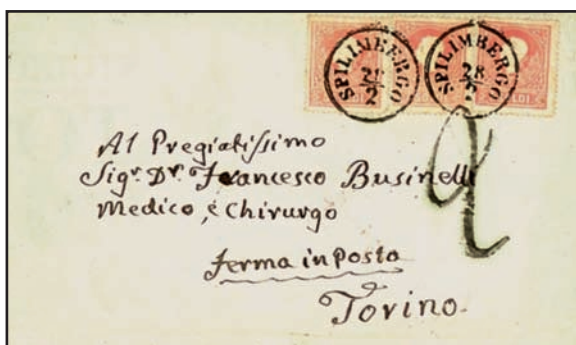 SPILIMBERGO
28
2
SPILIMBERGO
28
2
SOLDI
2
Al Pregiatissimo
Sigr. Dr. Francesco Businelli
Medico, e Chirurgo
ferma in Posta
Torino.